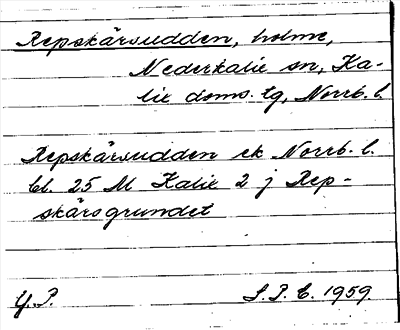 Repskärsudden, holme,
Nederkalix sn, Ka-
lix doms. lg, Norrb. l.
Repskärsudden ek Norrb. l.
bl. 25 M Kalix 2 j Rep-
skärsgrundet
Y.P. S.P.B. 1959.